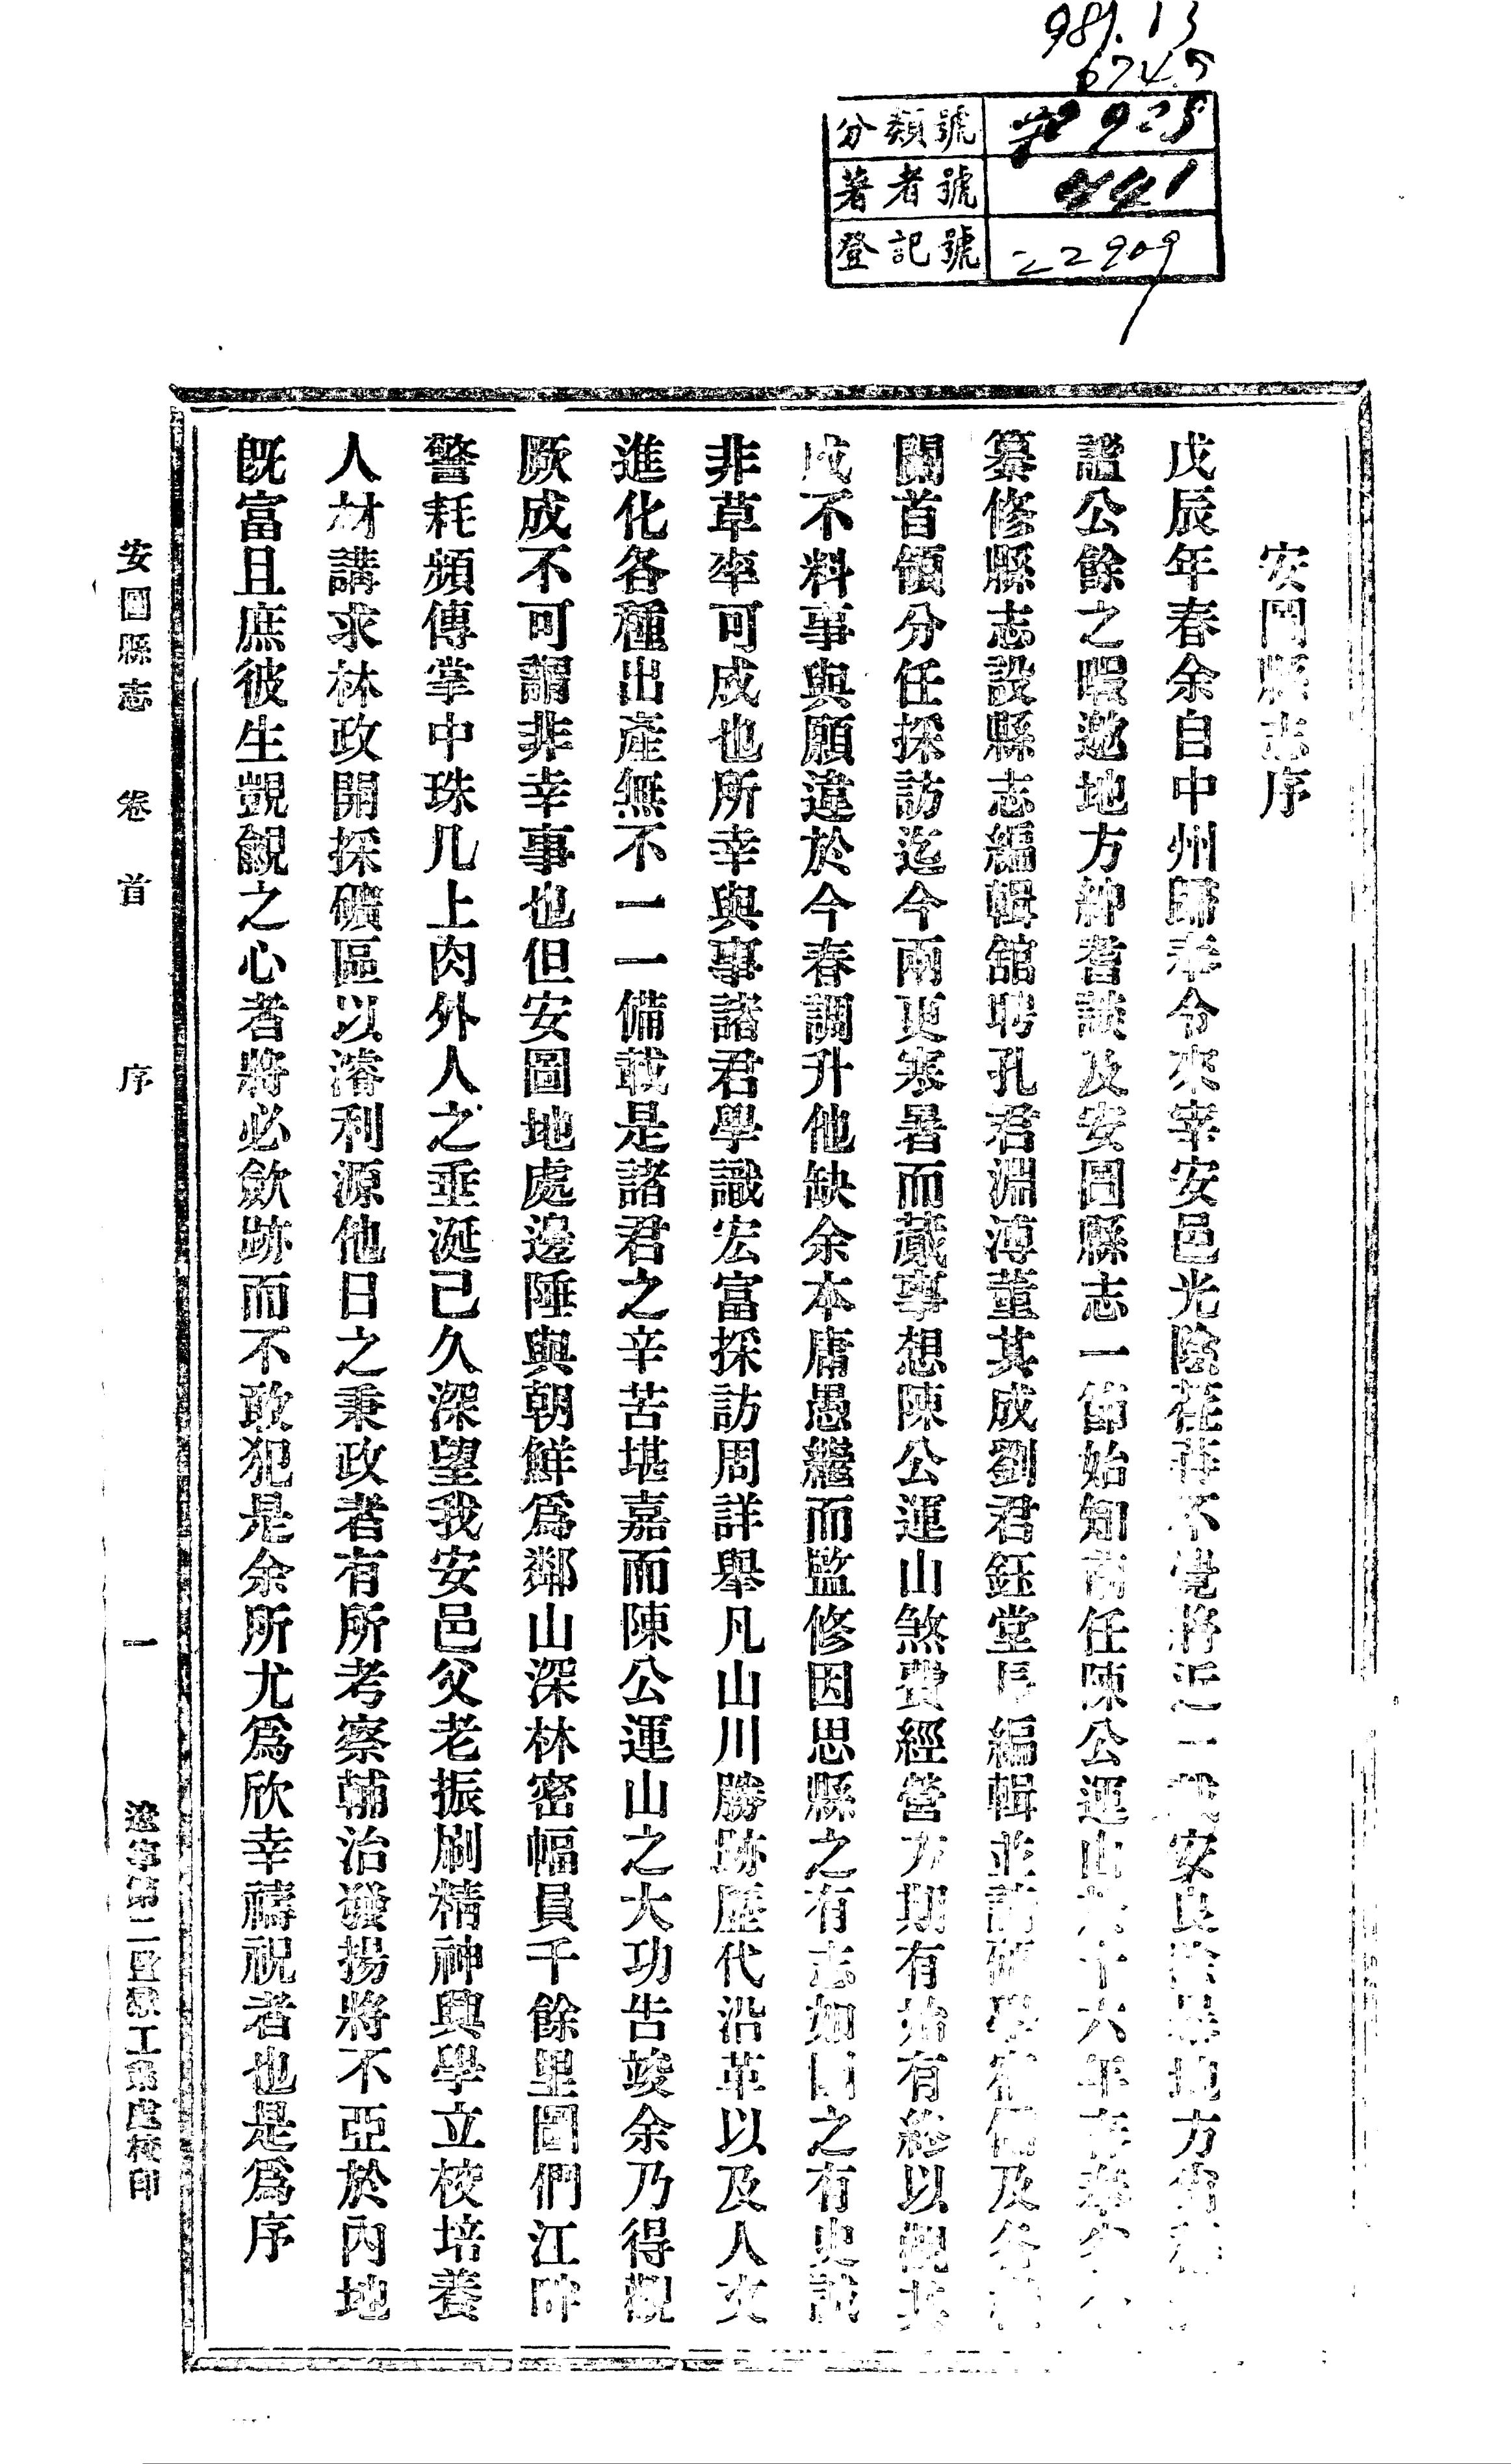 981.13
6747
分類號 925
著者號 441
登記號 22909
安圖縣志序
戊辰年春余自中州歸奉令來宰安邑光陰荏苒不覺將近一載安良除暴地方
謐公餘之暇邀地方紳耆談及安圖縣志一節始知前任陳公運山於十六年春奉
纂修縣志設縣志編輯館聘孔君淵溥董其成劉君鈺堂編輯並請碩學宿儒及各
關首領分任採訪迄今兩更寒暑而蕆事想陳公運山煞費經營方期有始有終以觀其
成不料事與願違於今春調升他缺余本庸愚繼而監修因思縣之有志如國之有史誠
非草率可成也所幸與事諸君學識宏富採訪周詳舉凡山川勝跡歷代沿革以及人文
進化各種出產無不一一備載是諸君之辛苦堪嘉而陳公運山之大功告竣余乃得觀
厥成不可謂非幸事也但安圖地處邊陲與朝鮮爲鄰山深林密幅員千餘里圖們江畔
警耗頻傳掌中珠几上肉外人之垂涎已久深望我安邑父老振刷精神興學立校培養
人材講求林政開採礦區以濬利源他日之秉政者有所考察輔治發揚將不亞於內地
既富且庶彼生覬覦之心者將必歛跡而不敢犯是余所尤爲欣幸禱祝者也是爲序
安圖縣志 卷首 序 一 遼寧第二監獄工業處校印